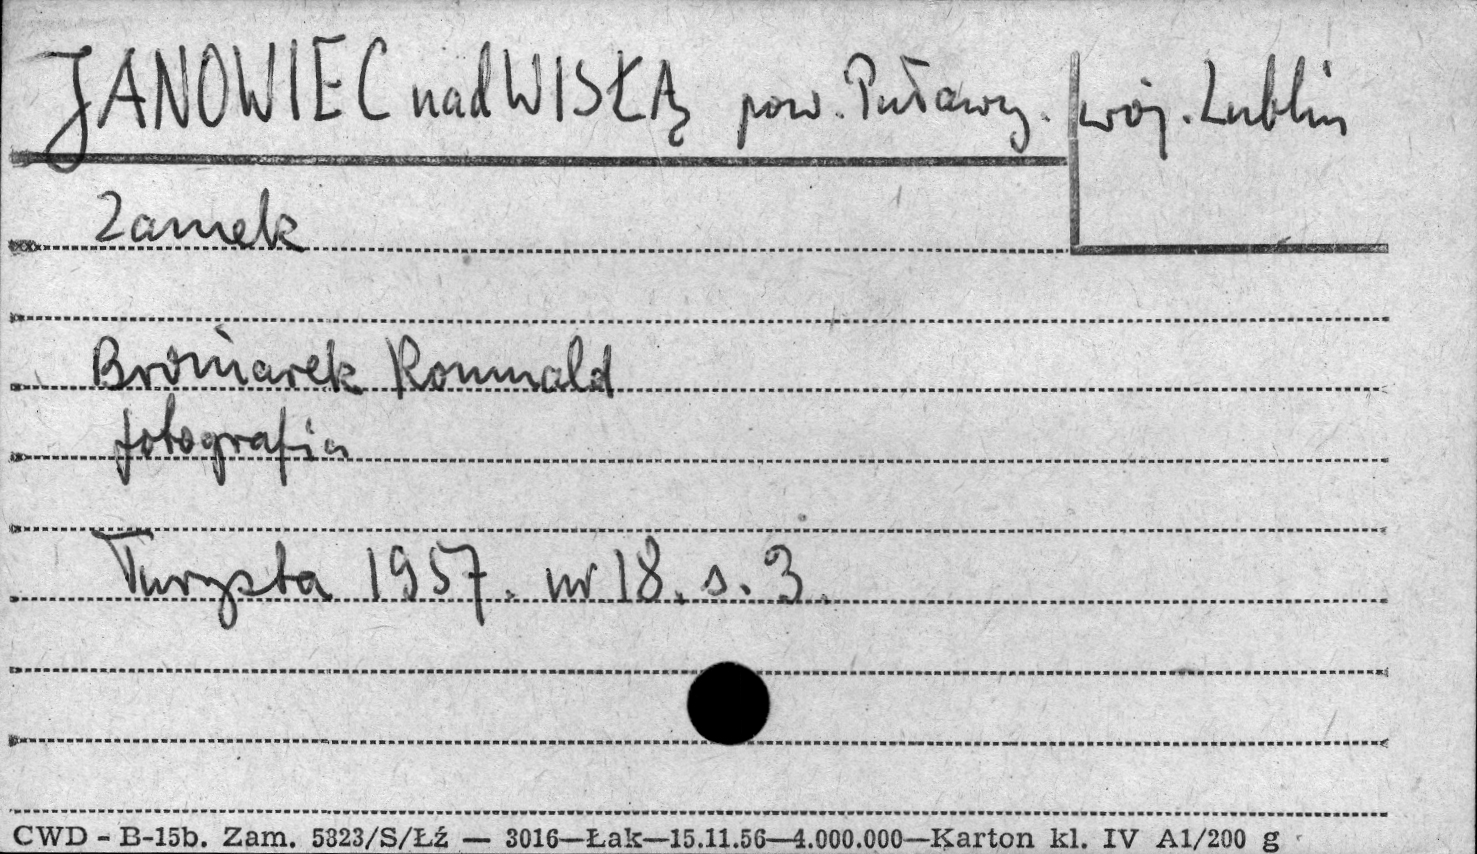 JANOWIEC nad WISŁĄ pow. Puławy. woj. Lublin
Zamek
Broniarek Romuald
fotografia
Turysta 1957. nr 18. s. 3.
CWD - B-15b. Zam. 5823/S/Łź — 3016—Łak—15.11.56—4.000.000—Karton kl. IV A1/200 g